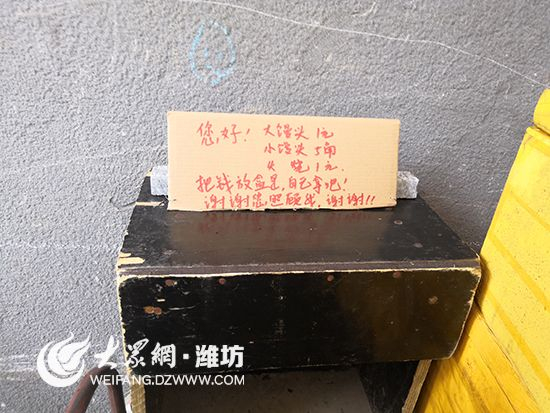 您,好! 大馒头1元
小馒头5角
火烧1元.
把钱放盒里,自己拿吧!
谢谢您照顾我,谢谢!!
大众網·潍坊
WEIFANG.DZWWW.COM